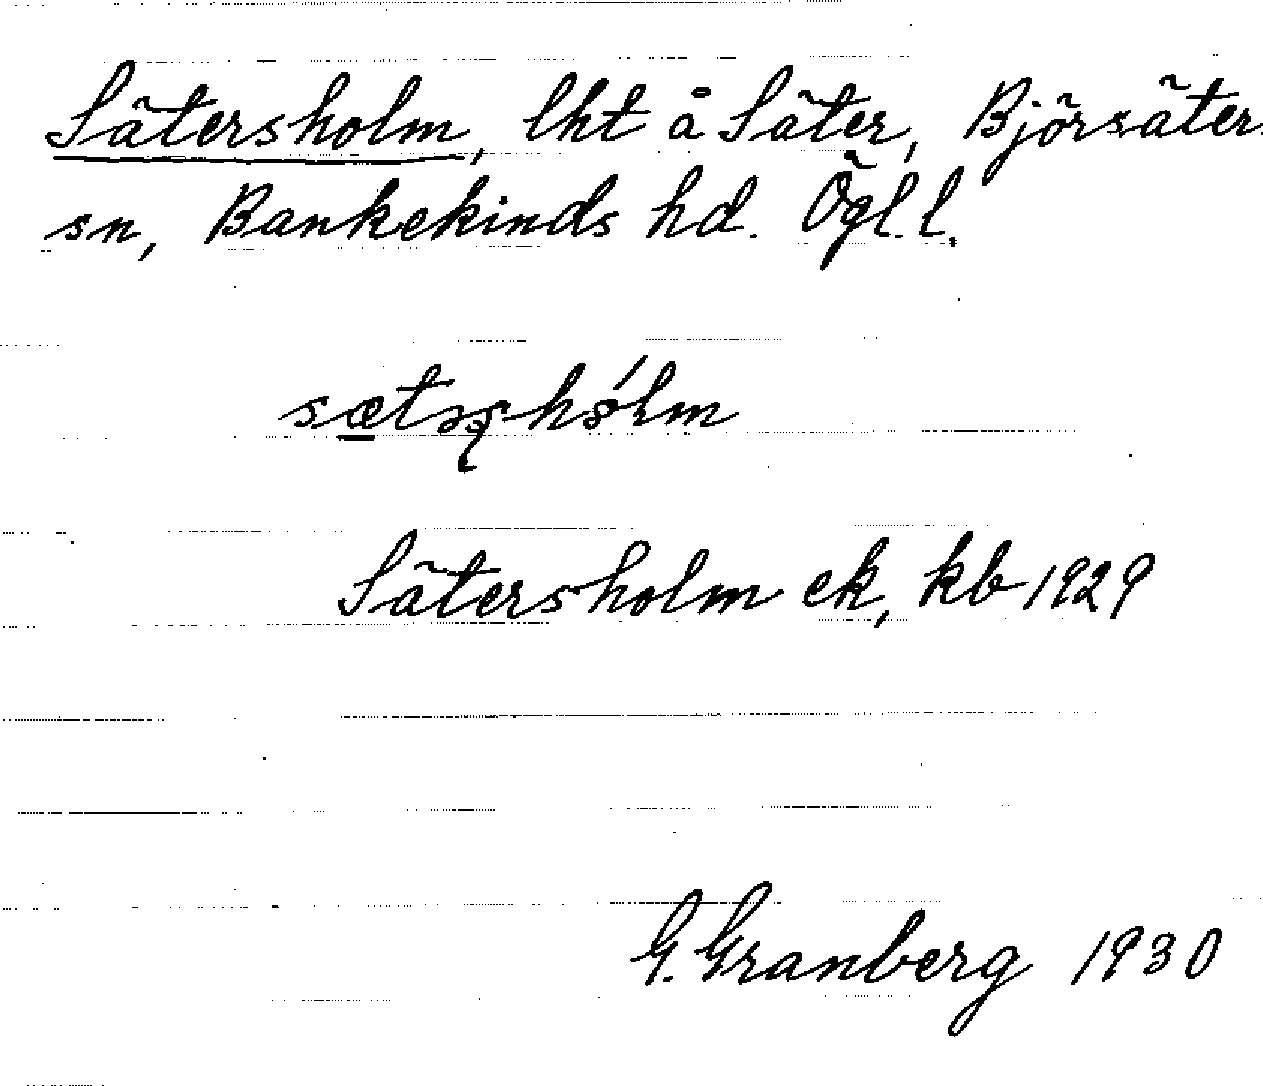 Sätersholm, lht å Säter, Björsäters
sn, Bankekinds hd. Ögl. l.
Sätersholm ek, kb 1929
G. Granberg 1930